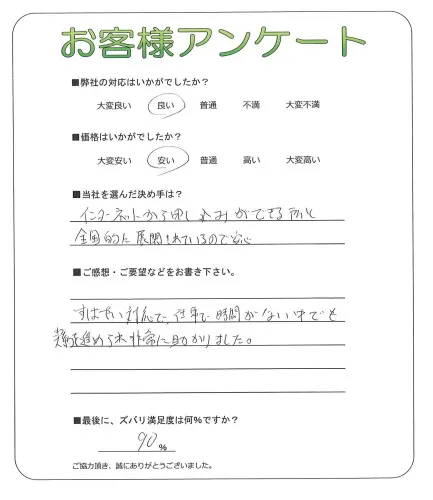 お客様アンケート
■弊社の対応はいかがでしたか？
大変良い 良い 普通 不満 大変不満
■価格はいかがでしたか？
大変安い 安い 普通 高い 大変高い
■当社を選んだ決め手は？
インターネットから申し込みができる所と
全国的に展開されているので安心
■ご感想・ご要望などをお書き下さい。
すばやい対応で、仕事で時間がない中でも
進められ非常に助かりました。
■最後に、ズバリ満足度は何％ですか？
90 %
ご協力頂き、誠にありがとうございました。